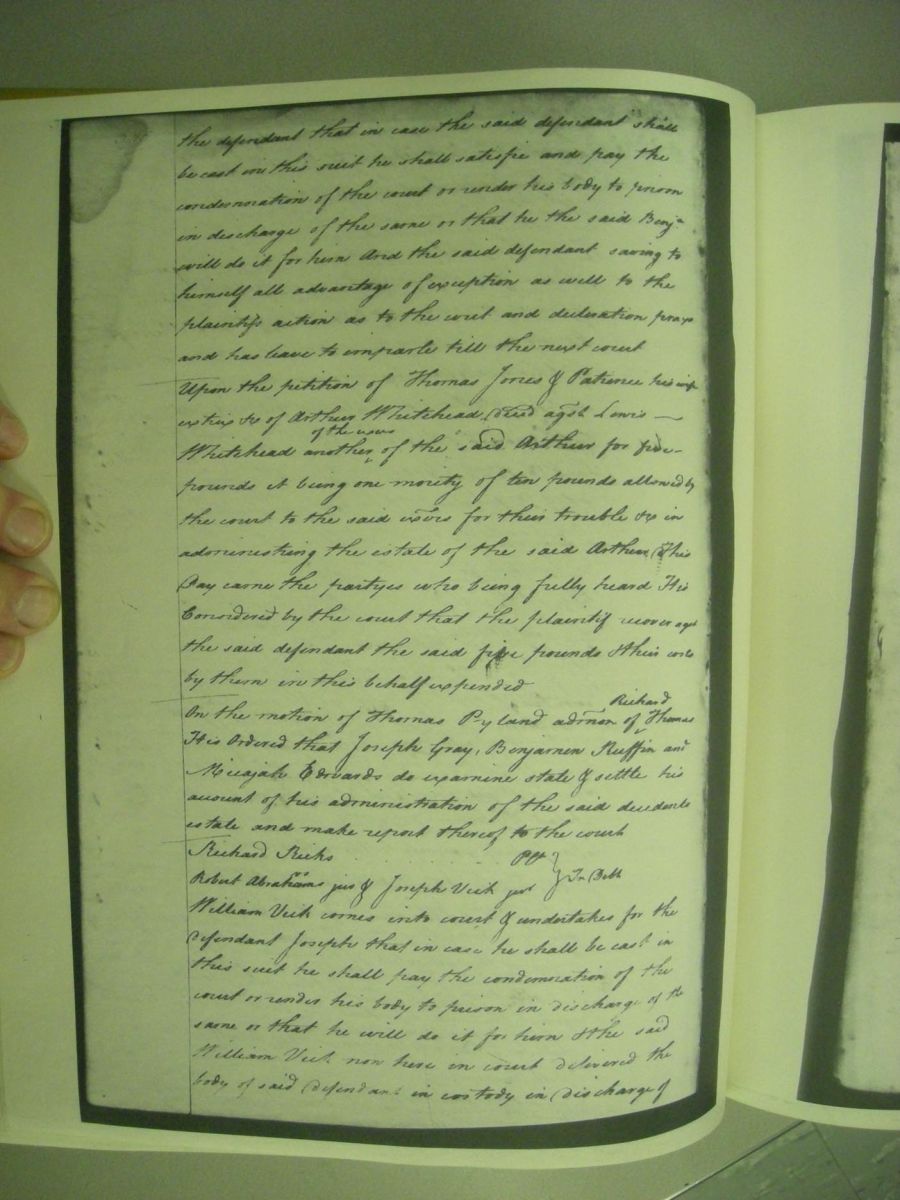 the defendant that in case the said defendant shall
be cast in this suit he shall satisfie and pay the
condemnation of the court or render his body to prison
in discharge of the same or that he the said Benja
will do it for him And the said defendant saving to
himself all advantage of exception as well to the
plaintifs action as to the writ and declaration prays
and has leave to imparle till the next court
Upon the petition of Thomas Jones & Patience his wife
extrix &c of Arthur Whitehead Decd agst Lewis
Whitehead another of the exors of the said Arthur for five
pounds it being one moiety of ten pounds allowed by
the court to the said exors for their trouble &c in
administring the estate of the said Arthur This
Day came the partyes who being fully heard It is
Considered by the court that the plaintif recover agst
the said defendant the said five pounds & their costs
by them in this behalf expended
On the motion of Thomas Pyland admon of Richard Thomas
It is Ordered that Joseph Gray, Benjamen Ruffin and
Micajah Edwards do examine state & settle his
account of his administration of the said decedents
estate and make report thereof to the court
Richard Ricks Plt
Robert Abrahams junr & Joseph Vick junr } In Debt
William Vick comes into court & undertakes for the
Defendant Joseph that in case he shall be cast in
this suit he shall pay the condemnation of the
court or render his body to prison in discharge of the
same or that he will do it for him & the said
William Vick now here in court delivered the
body of said Defendant in costody in Discharge of